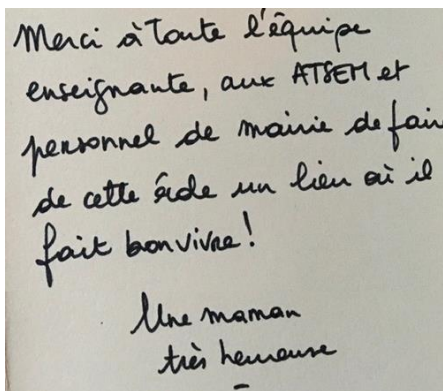 Merci à toute l'équipe
enseignante, aux ATSEM et
personnel de mairie de fair
de cette école un lieu où il
fait bon vivre !
Une maman
très heureuse